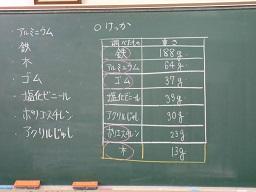 ・アルミニウム
・鉄
・木
・ゴム
・塩化ビニール
・ポリエスチレン
・アクリルじゅし
○けっか
調べたもの 重さ
鉄 188g
アルミニウム 64g
ゴム 37g
塩化ビニール 35g
アクリルじゅし 30g
ポリエスチレン 23g
木 13g